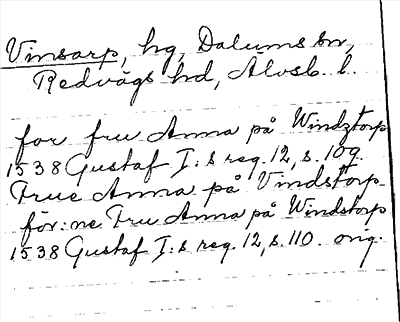 Vinsarp, hg, Dalums sn,
Redvägs hd, Älvsb. l.
for fru Anna på Windztorp
1538 Gustaf I:s reg. 12, s. 109.
Frue Anna på Vindstorp
för:ne Fru Anna på Windstorp
1538 Gustaf I:s reg. 12, s. 110. orig.